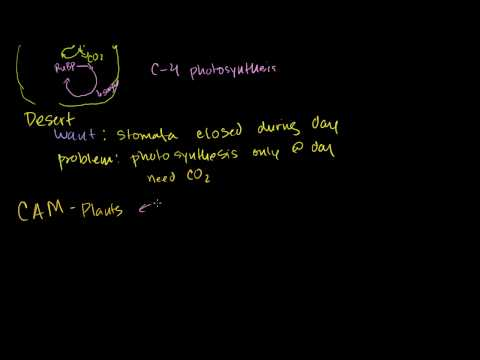 CO2
RuBP
C-4 photosynthesis
Desert
Want: stomata closed during day
problem: photosynthesis only @ day
need CO2
CAM - Plants